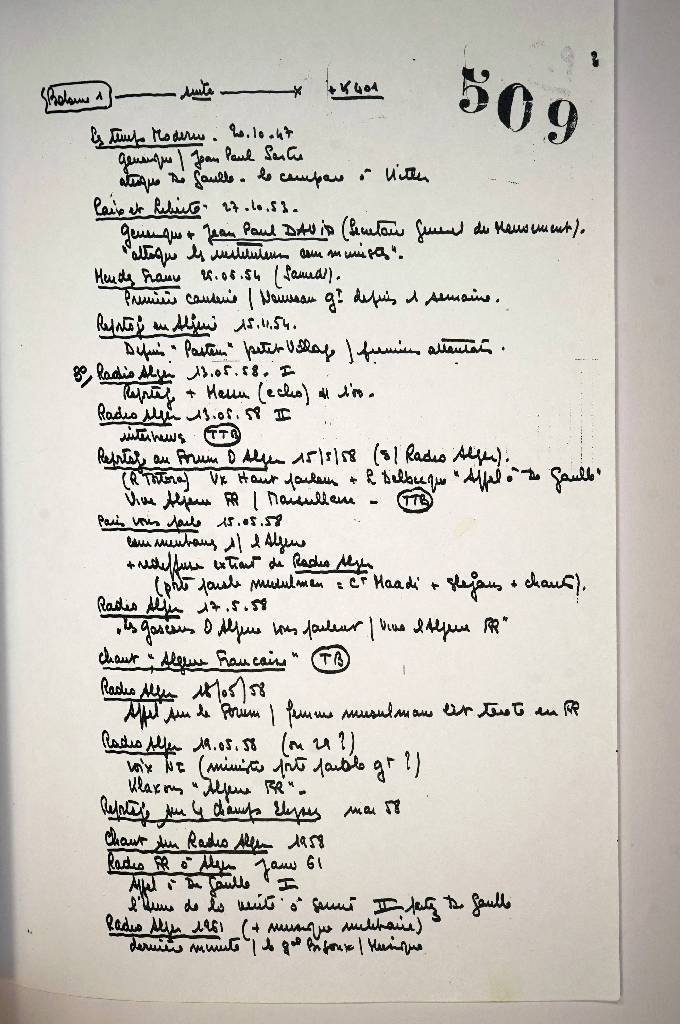 Bobine 1 suite + 401
509
Les Temps Moderne. 20.10.47
generique / Jean Paul Sartre
attaque De Gaulle. le compare à Hitler
Paix et Liberté. 27.10.53.
generique + Jean Paul DAVID (Secretaire General du Mouvement).
"attaque les instituteurs communistes".
Mendes France 26.06.54 (Samedi).
Première causerie / Nouveau gt depuis 1 semaine.
Reptge en Algerie 15.11.54.
Depuis "Pasteur" petit Village / premiers attentats.
Radio Alger 13.05.58. I
Reptge + Massu (echo)
Radio Alger 13.05.58 II
interviews TTB
Reptge au Forum D Alger 15/5/58 (s/ Radio Alger).
(R Tottora) Vx Haut parleur + L Delbecque "Appel à De Gaulle"
Vive Algerie FR / Marseillaise - TTB
Paris vous parle 15.05.58
commentaires s/ l Algerie
+ rediffuse extrait de Radio Alger
(porte parole musulman = Ct Maadi + slogans + chants).
Radio Alger 17.5.58
"les gascons D Algerie vous parlent / Vive l Algerie FR"
Chant "Algerie Francaise" TB
Radio Alger 18/05/58
Appel sur le Forum / femme musulmane lit texte en FR
Radio Alger 19.05.58 (ou 29?)
voix (ministre porte parole gt?)
Klaxons "Algerie FR".
Reptge sur les Champs Elysees mai 58
Chant sur Radio Alger 1958
Radio FR à Alger Janv 61
Appel à De Gaulle I
l'heure de la verité a sonné II De Gaulle
Radio Alger 1961 (+ musique militaire)
dernière minute / le gal / Musique